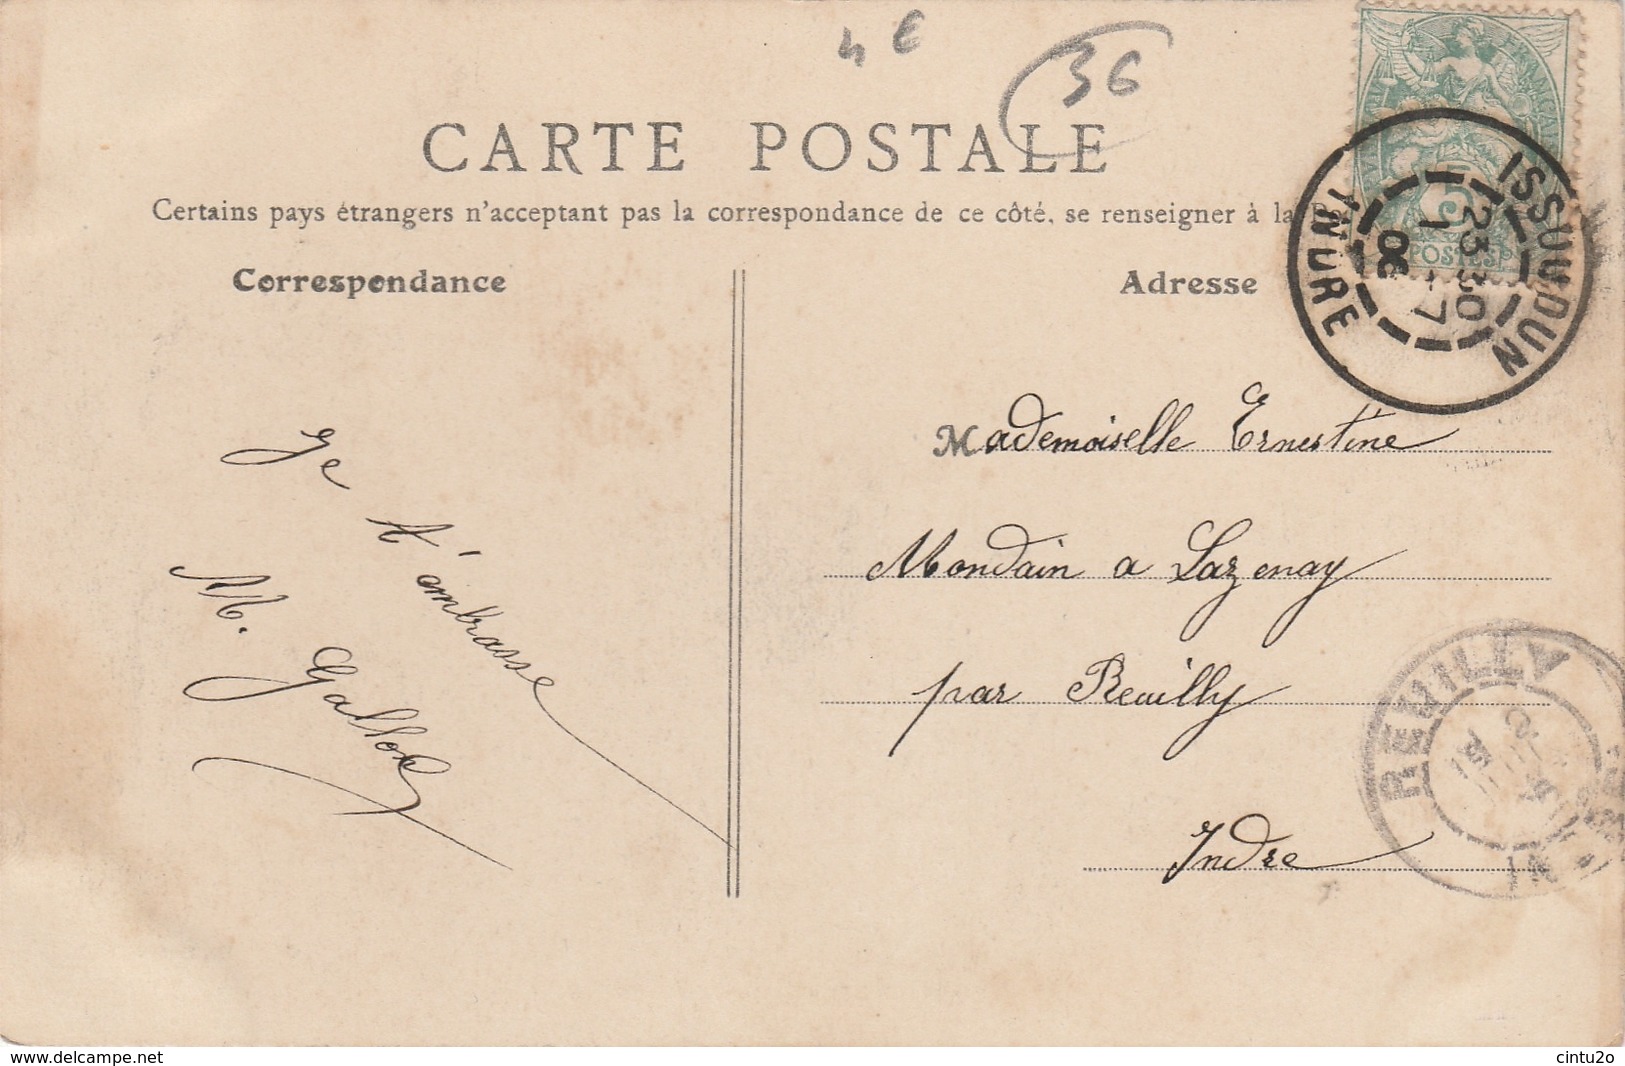 4 €
36
CARTE POSTALE
Certains pays étrangers n'acceptant pas la correspondance de ce côté, se renseigner à la
Correspondance
Adresse
ISSOUDUN
23 30
1 -7
06
INDRE
POSTES
Je t'embrasse
M. Gallok
Mademoiselle Ernestine
Mondain a Lazenay
par Reuilly
Indre
REUILLY
www.delcampe.net
cintu2o